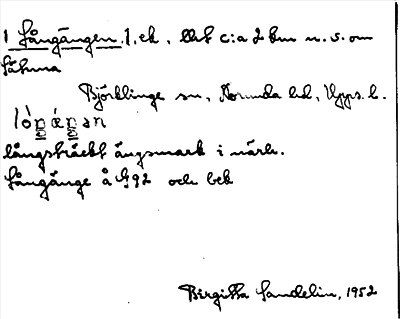 1 Långängen. 1, ek, ... c:a 2 km n. ö. om
Läkma
Björklinge sn, Norunda hd, Upps. l.
lòŋǽŋan
långsträckt ängsmark i närh.
Långänge å G 92 och bek
Birgitta Sandelin, 1952